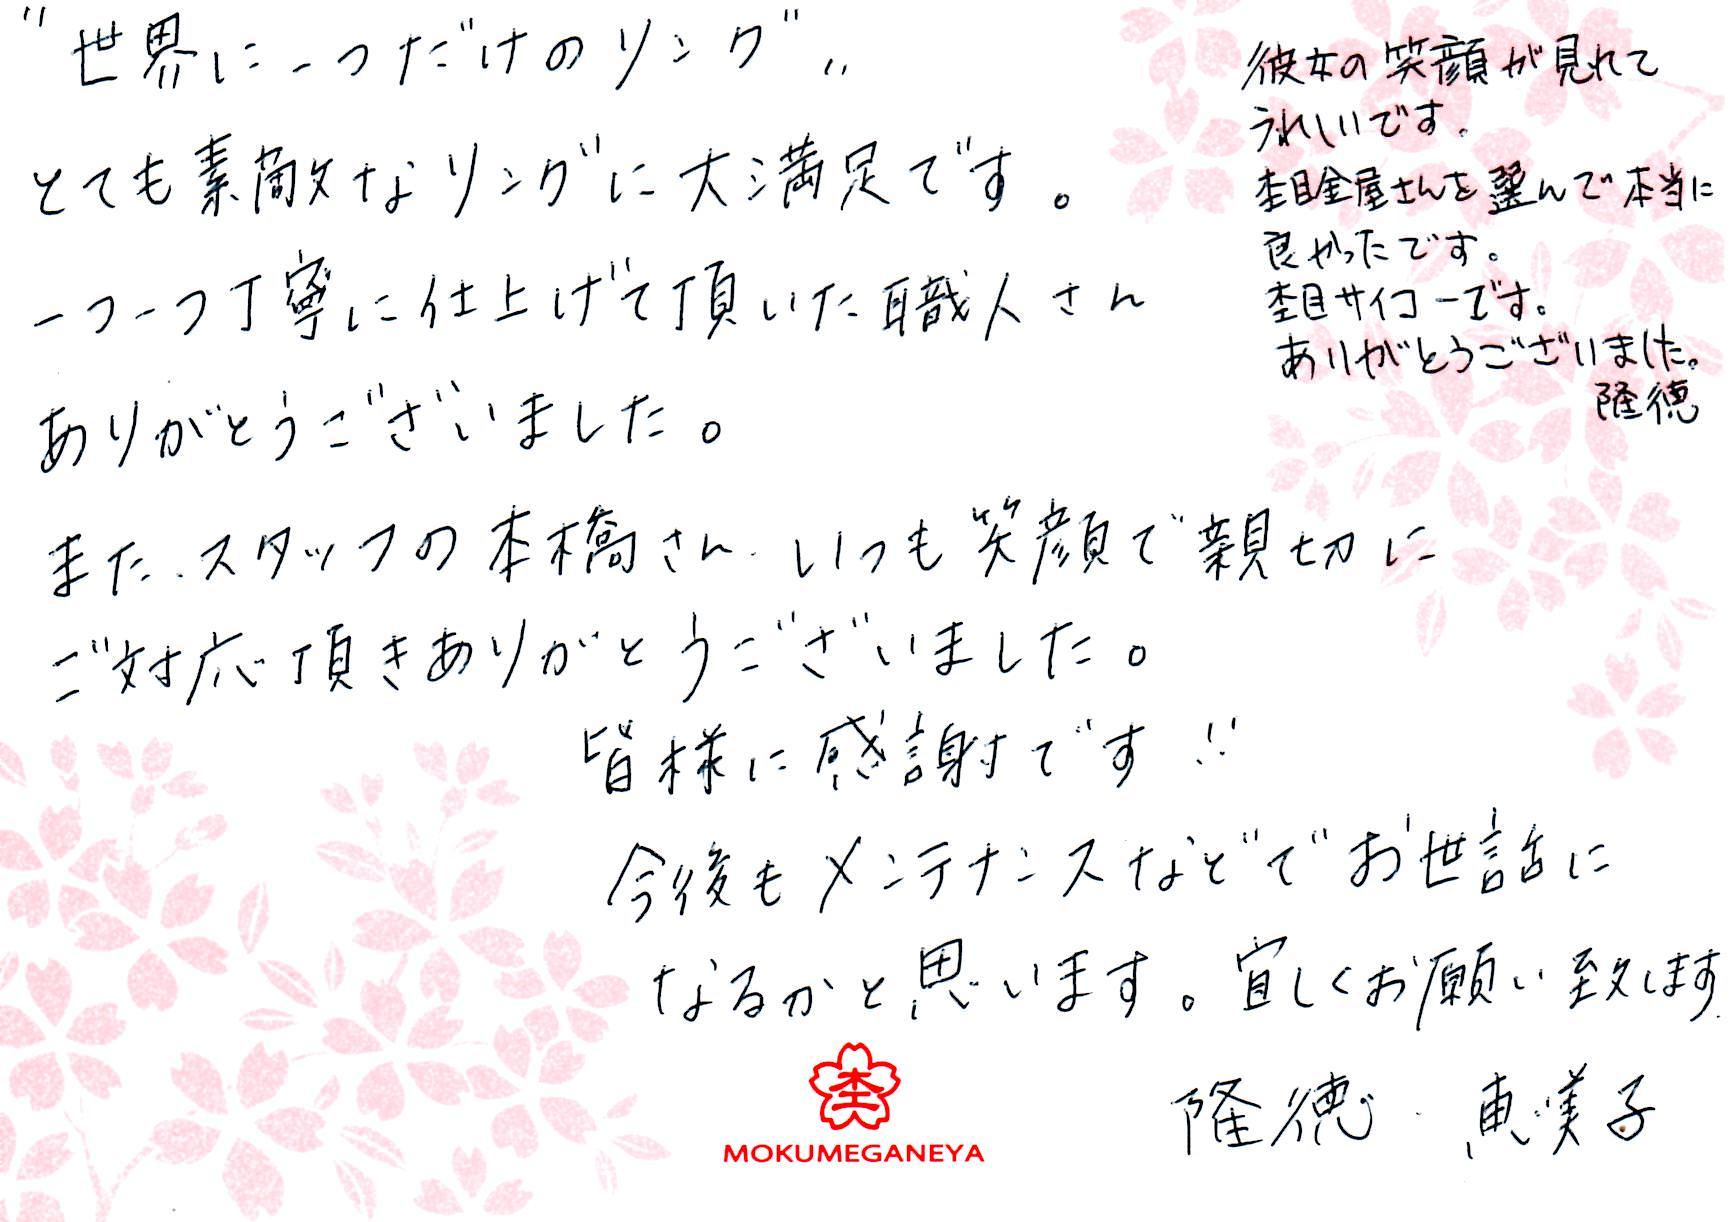 "世界に一つだけのリング"
とても素敵なリングに大満足です。
一つ一つ丁寧に仕上げて頂いた職人さん
ありがとうございました。
また、スタッフの本橋さん、いつも笑顔で親切に
ご対応頂きありがとうございました。
皆様に感謝です!!
今後もメンテナンスなどでお世話に
なるかと思います。宜しくお願い致します
隆徳・恵美子
彼女の笑顔が見れて
うれしいです。
杢目金屋さんを選んで本当に
良かったです。
杢目サイコーです。
ありがとうございました。
隆徳
杢
MOKUMEGANEYA